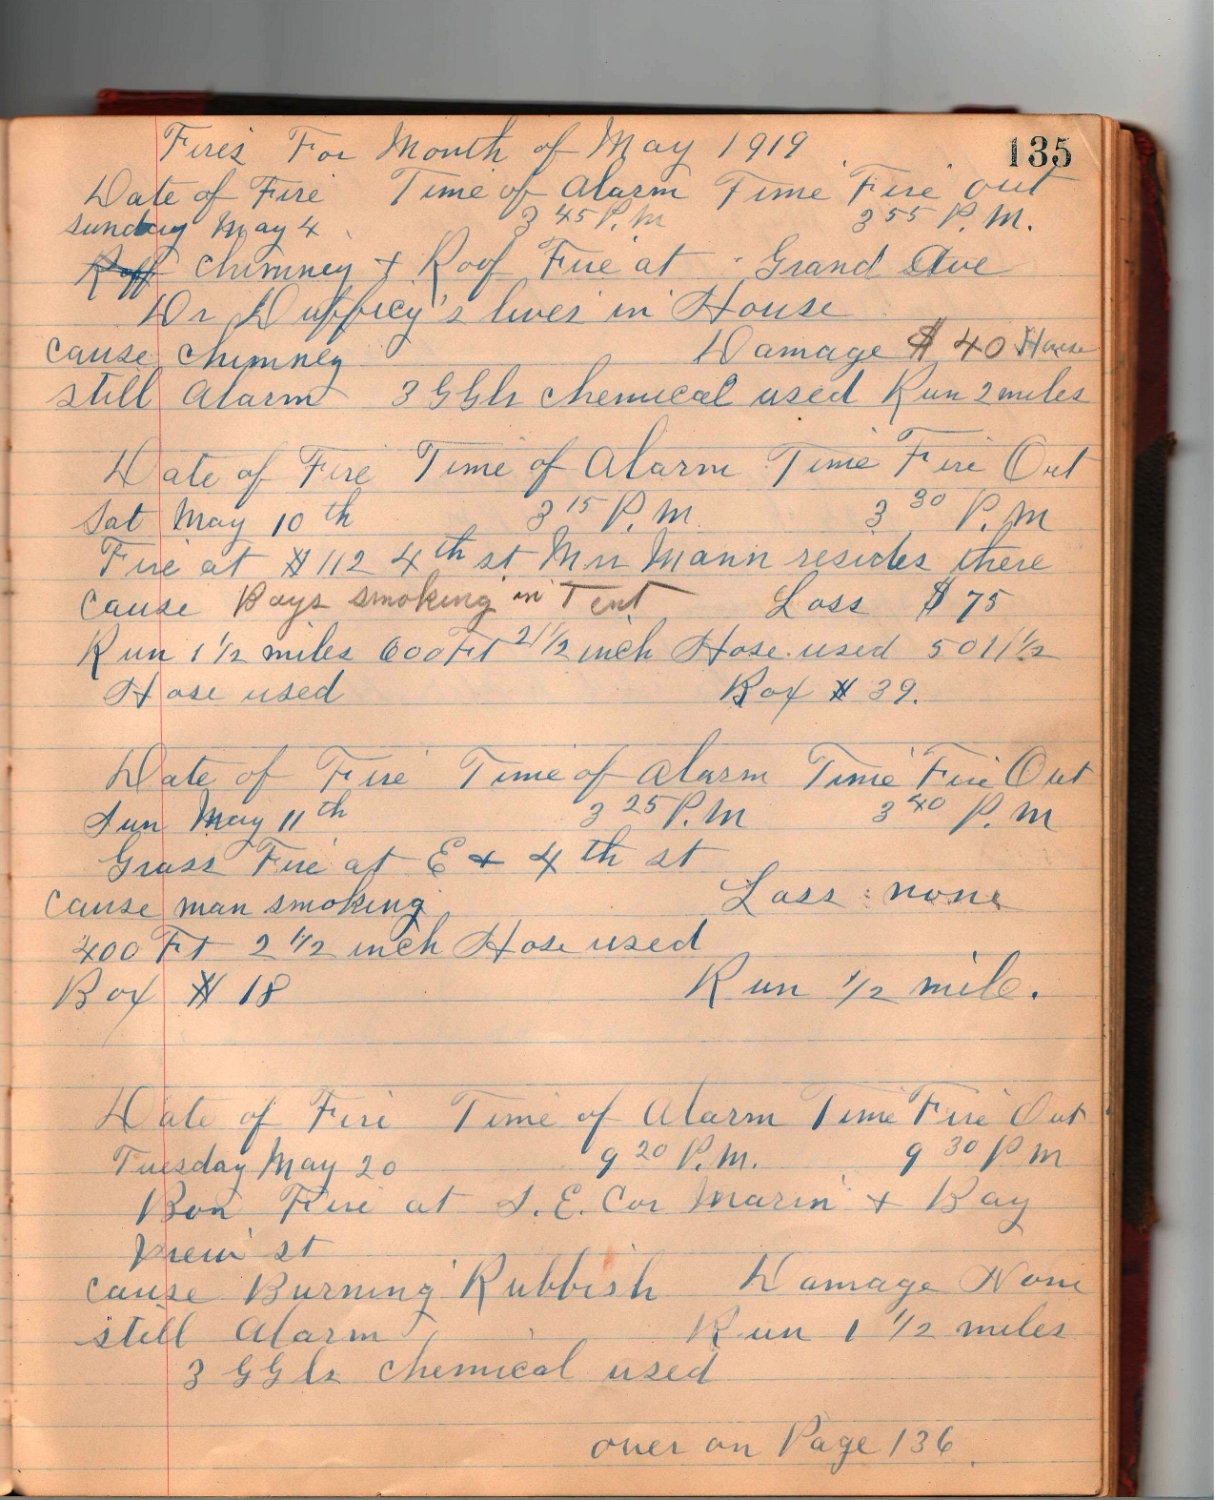 135
Fires For Month of May 1919
Date of Fire Time of Alarm Time Fire out
Sunday May 4 3 45 P.M 3 55 P.M.
Roff Chimney + Roof Fire at Grand Ave
Dr Dufficy's lives in House
cause chimney Damage $ 40 House
still Alarm 3 GGls chemical used Run 2 miles
Date of Fire Time of Alarm Time Fire Out
Sat May 10 th 3 15 P.M. 3 30 P.M
Fire at # 112 4th st Mrs Mann resides there
cause Boys smoking in Tent Loss $ 75
Run 1 1/2 miles 600 Ft 2 1/2 inch Hose used 50 1 1/2
Hose used Box # 39.
Date of Fire Time of Alarm Time Fire Out
Sun May 11th 3 25 P.M 3 40 P.M
Grass Fire at E + 4 th st
cause man smoking Loss none
400 Ft 2 1/2 inch Hose used
Box # 18 Run 1/2 mile.
Date of Fire Time of Alarm Time Fire Out
Tuesday May 20 9 20 P.M. 9 30 P M
Bon Fire at S.E. Cor Marin + Bay
View st
cause Burning Rubbish Damage None
still Alarm Run 1 1/2 miles
3 GGls chemical used
over on Page 136